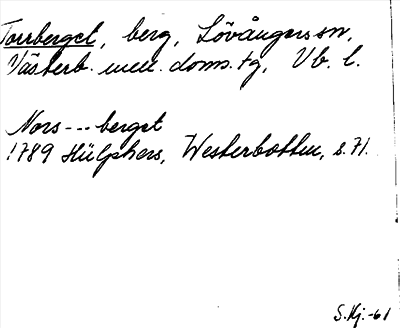 Torrberget, berg, Lövångers sn,
Västerb. mell. doms.tg, Vb. l.
Nors---berget
1789 Hülphers, Westerbotten, s. 71.
S.Kj.-61